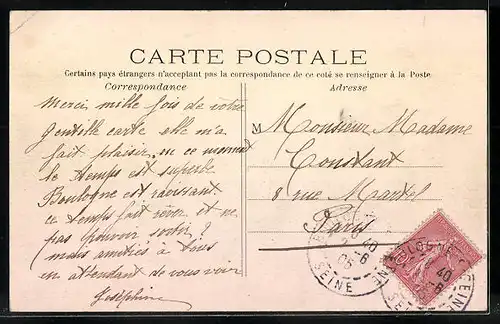 CARTE POSTALE
Certains pays étrangers n'acceptant pas la correspondance de ce coté se renseigner à la Poste
Correspondance
Adresse
Merci mille fois de votre
Gentille carte elle m'a
fait plaisir en ce moment
le temps est superbe
Boulogne est ravissant
ce temps fait rêver et ne
pas pouvoir sortir ?
mais amitiés à tous
en attendant de vous voir
Joséphine
M Monsieur Madame
Constant
8 rue Martel
Paris
SEINE
6
05
40
SEINE